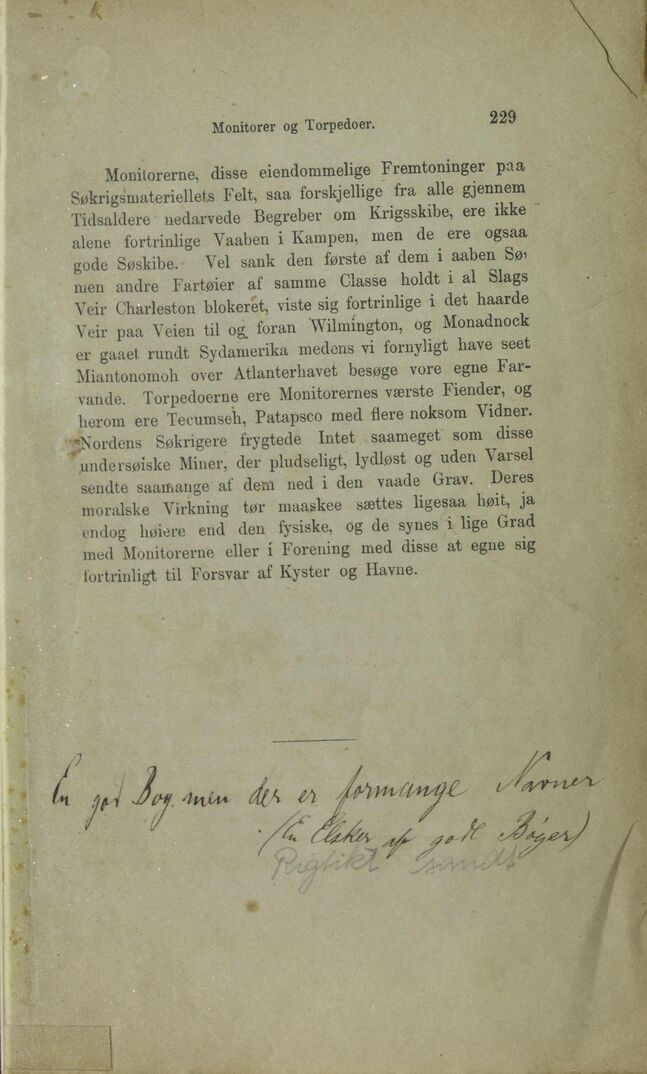 Monitorer og Torpedoer. 229
Monitorerne, disse eiendommelige Fremtoninger paa
Søkrigsmateriellets Felt, saa forskjellige fra alle gjennem
Tidsaldere nedarvede Begreber om Krigsskibe, ere ikke
alene fortrinlige Vaaben i Kampen, men de ere ogsaa
gode Søskibe. Vel sank den første af dem i aaben Sø,
men andre Fartøier af samme Classe holdt i al Slags
Veir Charleston blokeret, viste sig fortrinlige i det haarde
Veir paa Veien til og foran Wilmington, og Monadnock
er gaaet rundt Sydamerika medens vi fornyligt have seet
Miantonomoh over Atlanterhavet besøge vore egne Far-
vande. Torpedoerne ere Monitorernes værste Fiender, og
herom ere Tecumseh, Patapsco med flere noksom Vidner.
Nordens Søkrigere frygtede Intet saameget som disse
undersøiske Miner, der pludseligt, lydløst og uden Varsel
sendte saamange af dem ned i den vaade Grav. Deres
moralske Virkning tør maaskee sættes ligesaa høit, ja
endog høiere end den fysiske, og de synes i lige Grad
med Monitorerne eller i Forening med disse at egne sig
fortrinligt til Forsvar af Kyster og Havne.
En god Bog. men der er formange Navner
(En Elsker af gode Bøger)
Rigtikt sandt